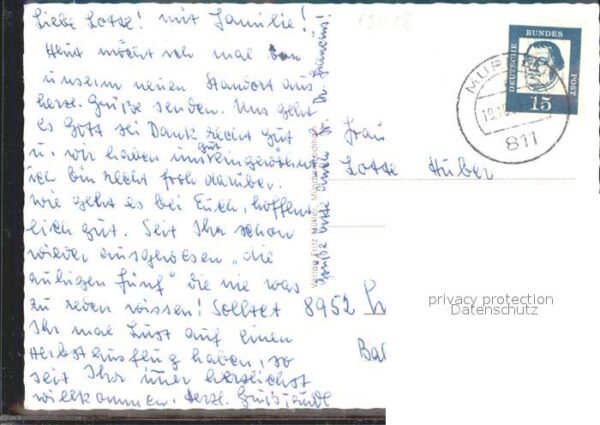 Liebe Lotte! mit Familie!
Heut möcht ich mal von
unserem neuen Standort aus
herzl. Grüße senden. Uns geht
es Gott sei Dank recht gut
u. wir haben uns gut eingewöhnt
ich bin recht froh darüber.
Wie geht es bei Euch, hoffent
lich gut. Seit Ihr schon
wieder ausgewesen „die
ruhigen fünf" die nie was
zu reden wissen! Solltet
Ihr mal Lust auf einen
Herbstausflug haben, so
seit Ihr immer herzlichst
willkommen. Herzl. Grüß
Grüße bitte auch Dr.
Verlag Fritz
DEUTSCHE BUNDES POST
15
MUR
10.10
811
Frau
Lotte Huber
8952
privacy protection
Datenschutz